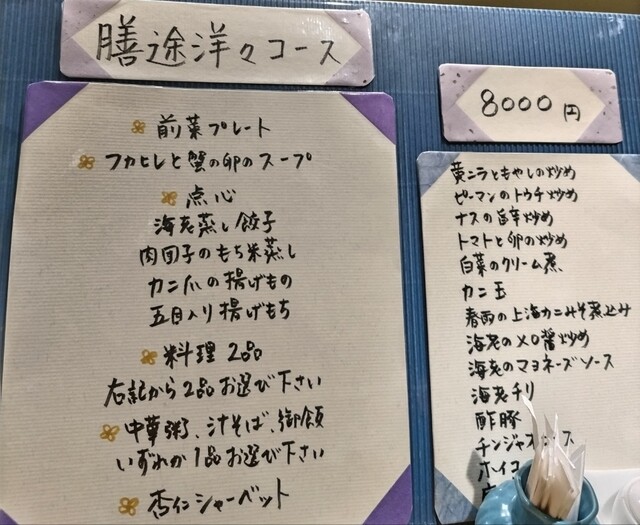 膳途洋々コース
前菜プレート
フカヒレと蟹の卵のスープ
点心
海老蒸し餃子
肉団子のもち米蒸し
カニ爪の揚げもの
五目入り揚げもち
料理2品
右記から2品お選び下さい
中華粥、汁そば、御飯
いずれか1品お選び下さい
杏仁シャーベット
8000円
黄ニラともやしの炒め
ピーマンのトウチ炒め
ナスの旨辛炒め
トマトと卵の炒め
白菜のクリーム煮
カニ玉
春雨の上海カニみそ煮込み
海老のXO醤炒め
海老のマヨネーズソース
海老チリ
酢豚
チンジャ
ホイコ